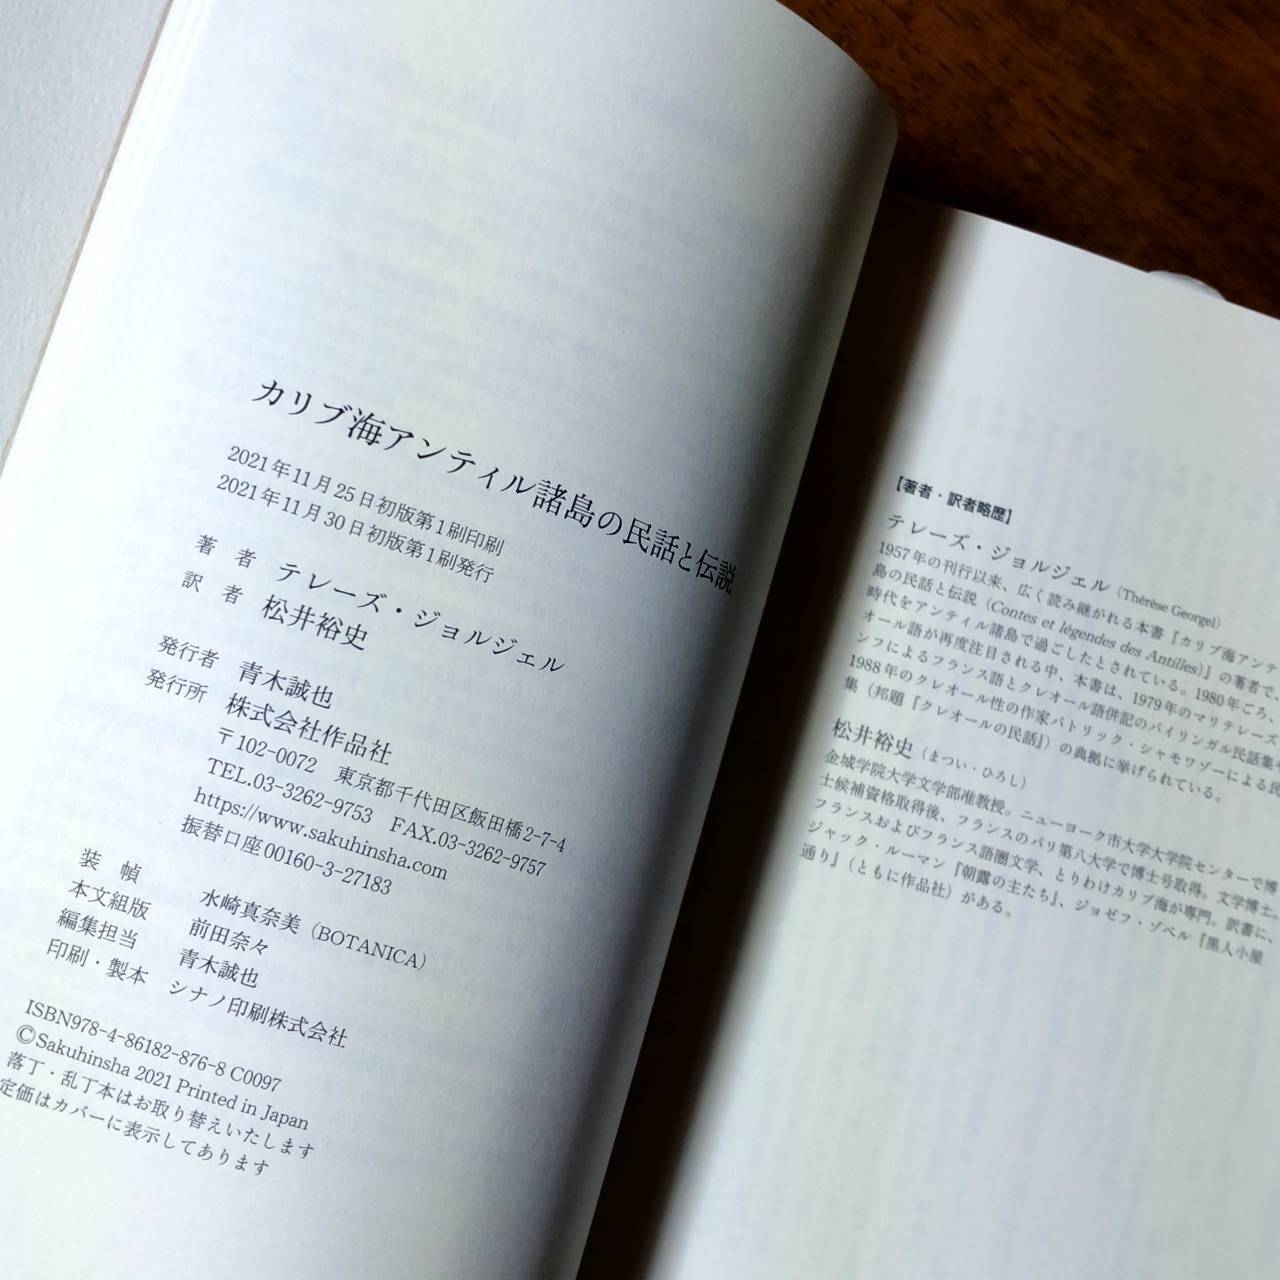 カリブ海アンティル諸島の民話と伝説
2021年11月25日初版第1刷印刷
2021年11月30日初版第1刷発行
著 者 テレーズ・ジョルジェル
訳 者 松井裕史
発行者 青木誠也
発行所 株式会社作品社
〒102-0072 東京都千代田区飯田橋2-7-4
TEL.03-3262-9753 FAX.03-3262-9757
https://www.sakuhinsha.com
振替口座00160-3-27183
装 幀 水崎真奈美（BOTANICA）
本文組版 前田奈々
編集担当 青木誠也
印刷・製本 シナノ印刷株式会社
ISBN978-4-86182-876-8 C0097
©Sakuhinsha 2021 Printed in Japan
落丁・乱丁本はお取り替えいたします
定価はカバーに表示してあります
【著者・訳者略歴】
テレーズ・ジョルジェル（Thérèse Georgel）
1957年の刊行以来、広く読み継がれる本書『カリブ海アンテ
島の民話と伝説（Contes et légendes des Antilles）』の著者で、
時代をアンティル諸島で過ごしたとされている。1980年ごろ、
オール語が再度注目される中、本書は、1979年のマリテレーズ
ンフによるフランス語とクレオール語併記のバイリンガル民話集や
1988年のクレオール性の作家パトリック・シャモワゾーによる民
集（邦題『クレオールの民話』）の典拠に挙げられている。
松井裕史（まつい・ひろし）
金城学院大学文学部准教授。ニューヨーク市大学大学院センターで博
士候補資格取得後、フランスのパリ第八大学で博士号取得。文学博士。
フランスおよびフランス語圏文学、とりわけカリブ海が専門。訳書に、
ジャック・ルーマン『朝露の主たち』、ジョゼフ・ゾベル『黒人小屋
通り』（ともに作品社）がある。